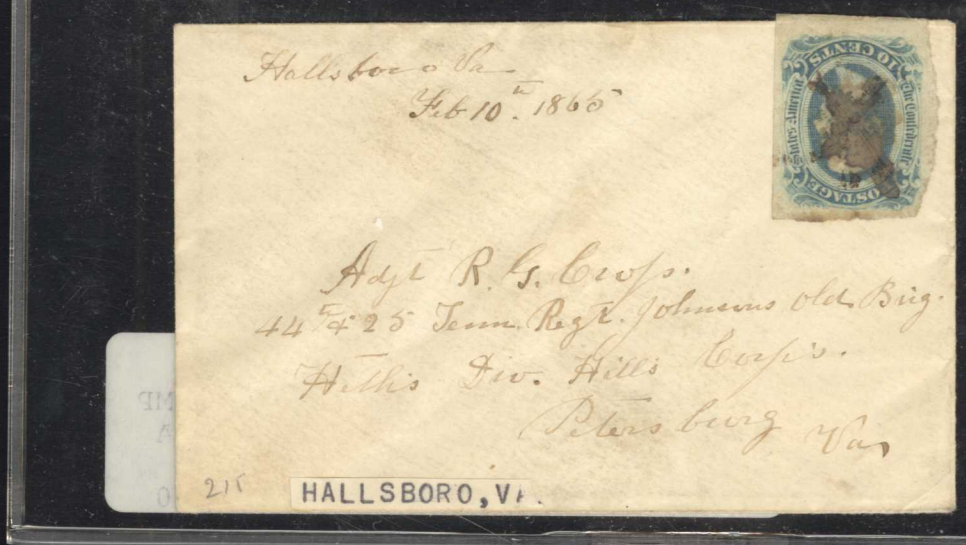 Hallsboro Va
Feb 10th. 1865
10 CENTS
The Confederate
States America
POSTAGE
Adjt R. G. Cross.
44th & 25 Tenn. Regt. Johnsons Old Brig.
Heth's Div. Hills Corps.
Petersburg Va
215
HALLSBORO, VA.